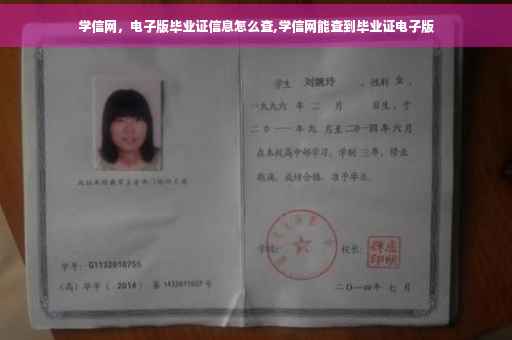 学信网，电子版毕业证信息怎么查,学信网能查到毕业证电子版
学生 刘婉玲 ，性别 女 ，
一九九六 年 二 月 日生，于
二〇一一年 九 月至二〇一四年 六 月
在本校高中部学习，学制 三年，修业
期满，成绩合格，准予毕业。
学校： 校长：
二〇一四年 七 月
学号： G1132010755
（高）毕字（ 2014 ）第 1432011027 号